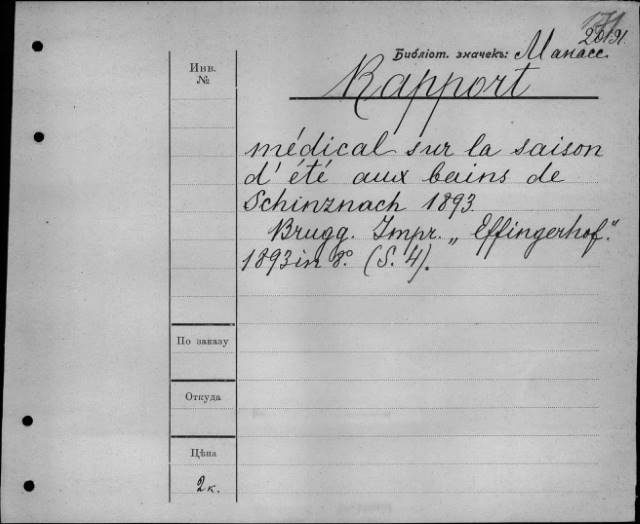 Библіот. значекъ: Манасс.
Инв.
№
Rapport
médical sur la saison
d'été aux bains de
Schinznach 1893.
Brugg. Impr. „Effingerhof."
1893 in 8º. (S. 4).
По заказу
Откуда
Цѣна
2 к.